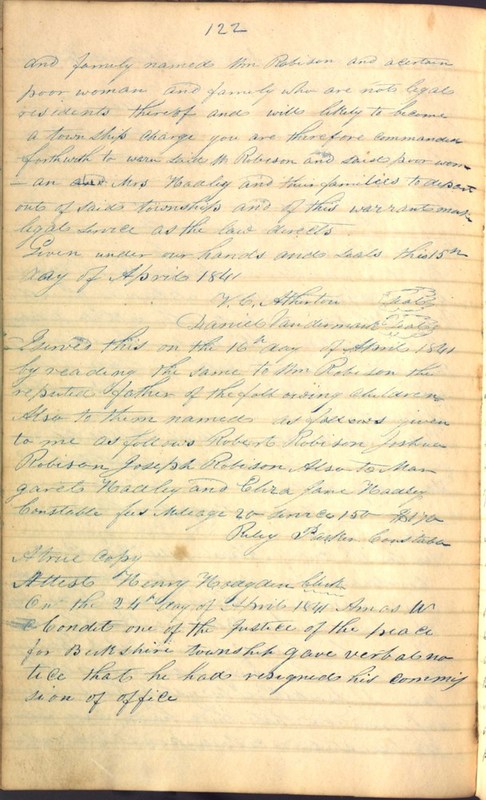 122
and family named Wm Robison and a certain
poor woman and family who are not legal
residents thereof and will likely to become
a township charge you are therefore commanded
forthwith to warn said W Robison and said poor wom
an and Mrs Hadley and their families to depart
out of said township and of this warrant make
legal service as the law directs
Given under our hands and seals this 15th
day of April 1841
V. C. Atherton Seal
Daniel Vandermark Seal
I served this on the 16th day of April 1841
by reading the same to Wm Robison the
reputed father of the following children
Also to them named as follows given
to me as follows Robert Robison Joshua
Robison Joseph Robison Also to Mar
garet Hadley and Eliza Jane Hadley
Constable fees Mileage 20 150 $1.70
Riley Constable
A true Copy
Attest Henry Hodgden Clerk
On the 24th day of April 1841 Amos W
Condit one of the Justice of the peace
for Berkshire township gave verbal no
tice that he had resigned his commis
sion of office